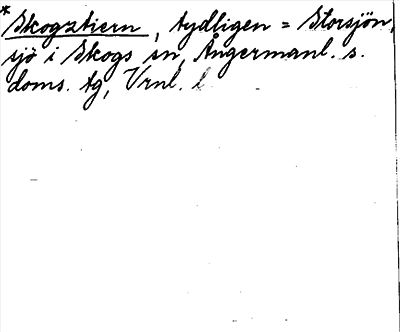 * Skogztiern, tydligen = Storsjön,
sjö i Skogs sn, Ångermanl. s.
doms. tg, Vrnl. l